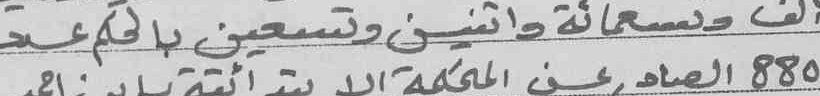 ألف وتسعمائة واتنين وتسعين بالحكم عدد
880 الصادر عن المحكمة الابتدائية